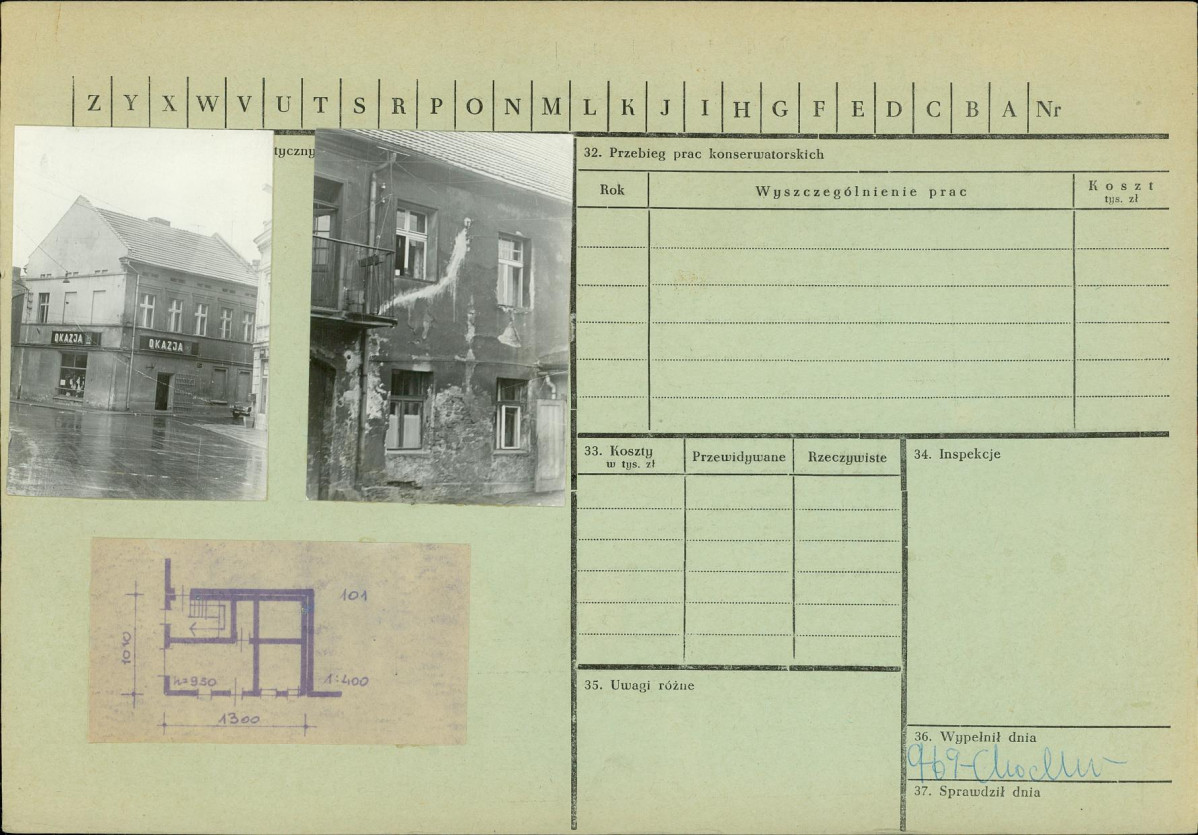 Z Y X W V U T S R P O N M L K J I H G F E D C B A Nr
tyczny
OKAZJA
OKAZJA
32. Przebieg prac konserwatorskich
Rok
Wyszczególnienie prac
Koszt
tys. zł
33. Koszty
w tys. zł
Przewidywane
Rzeczywiste
34. Inspekcje
101
1010
h=930
1:400
1300
35. Uwagi różne
36. Wypełnił dnia
969
37. Sprawdził dnia